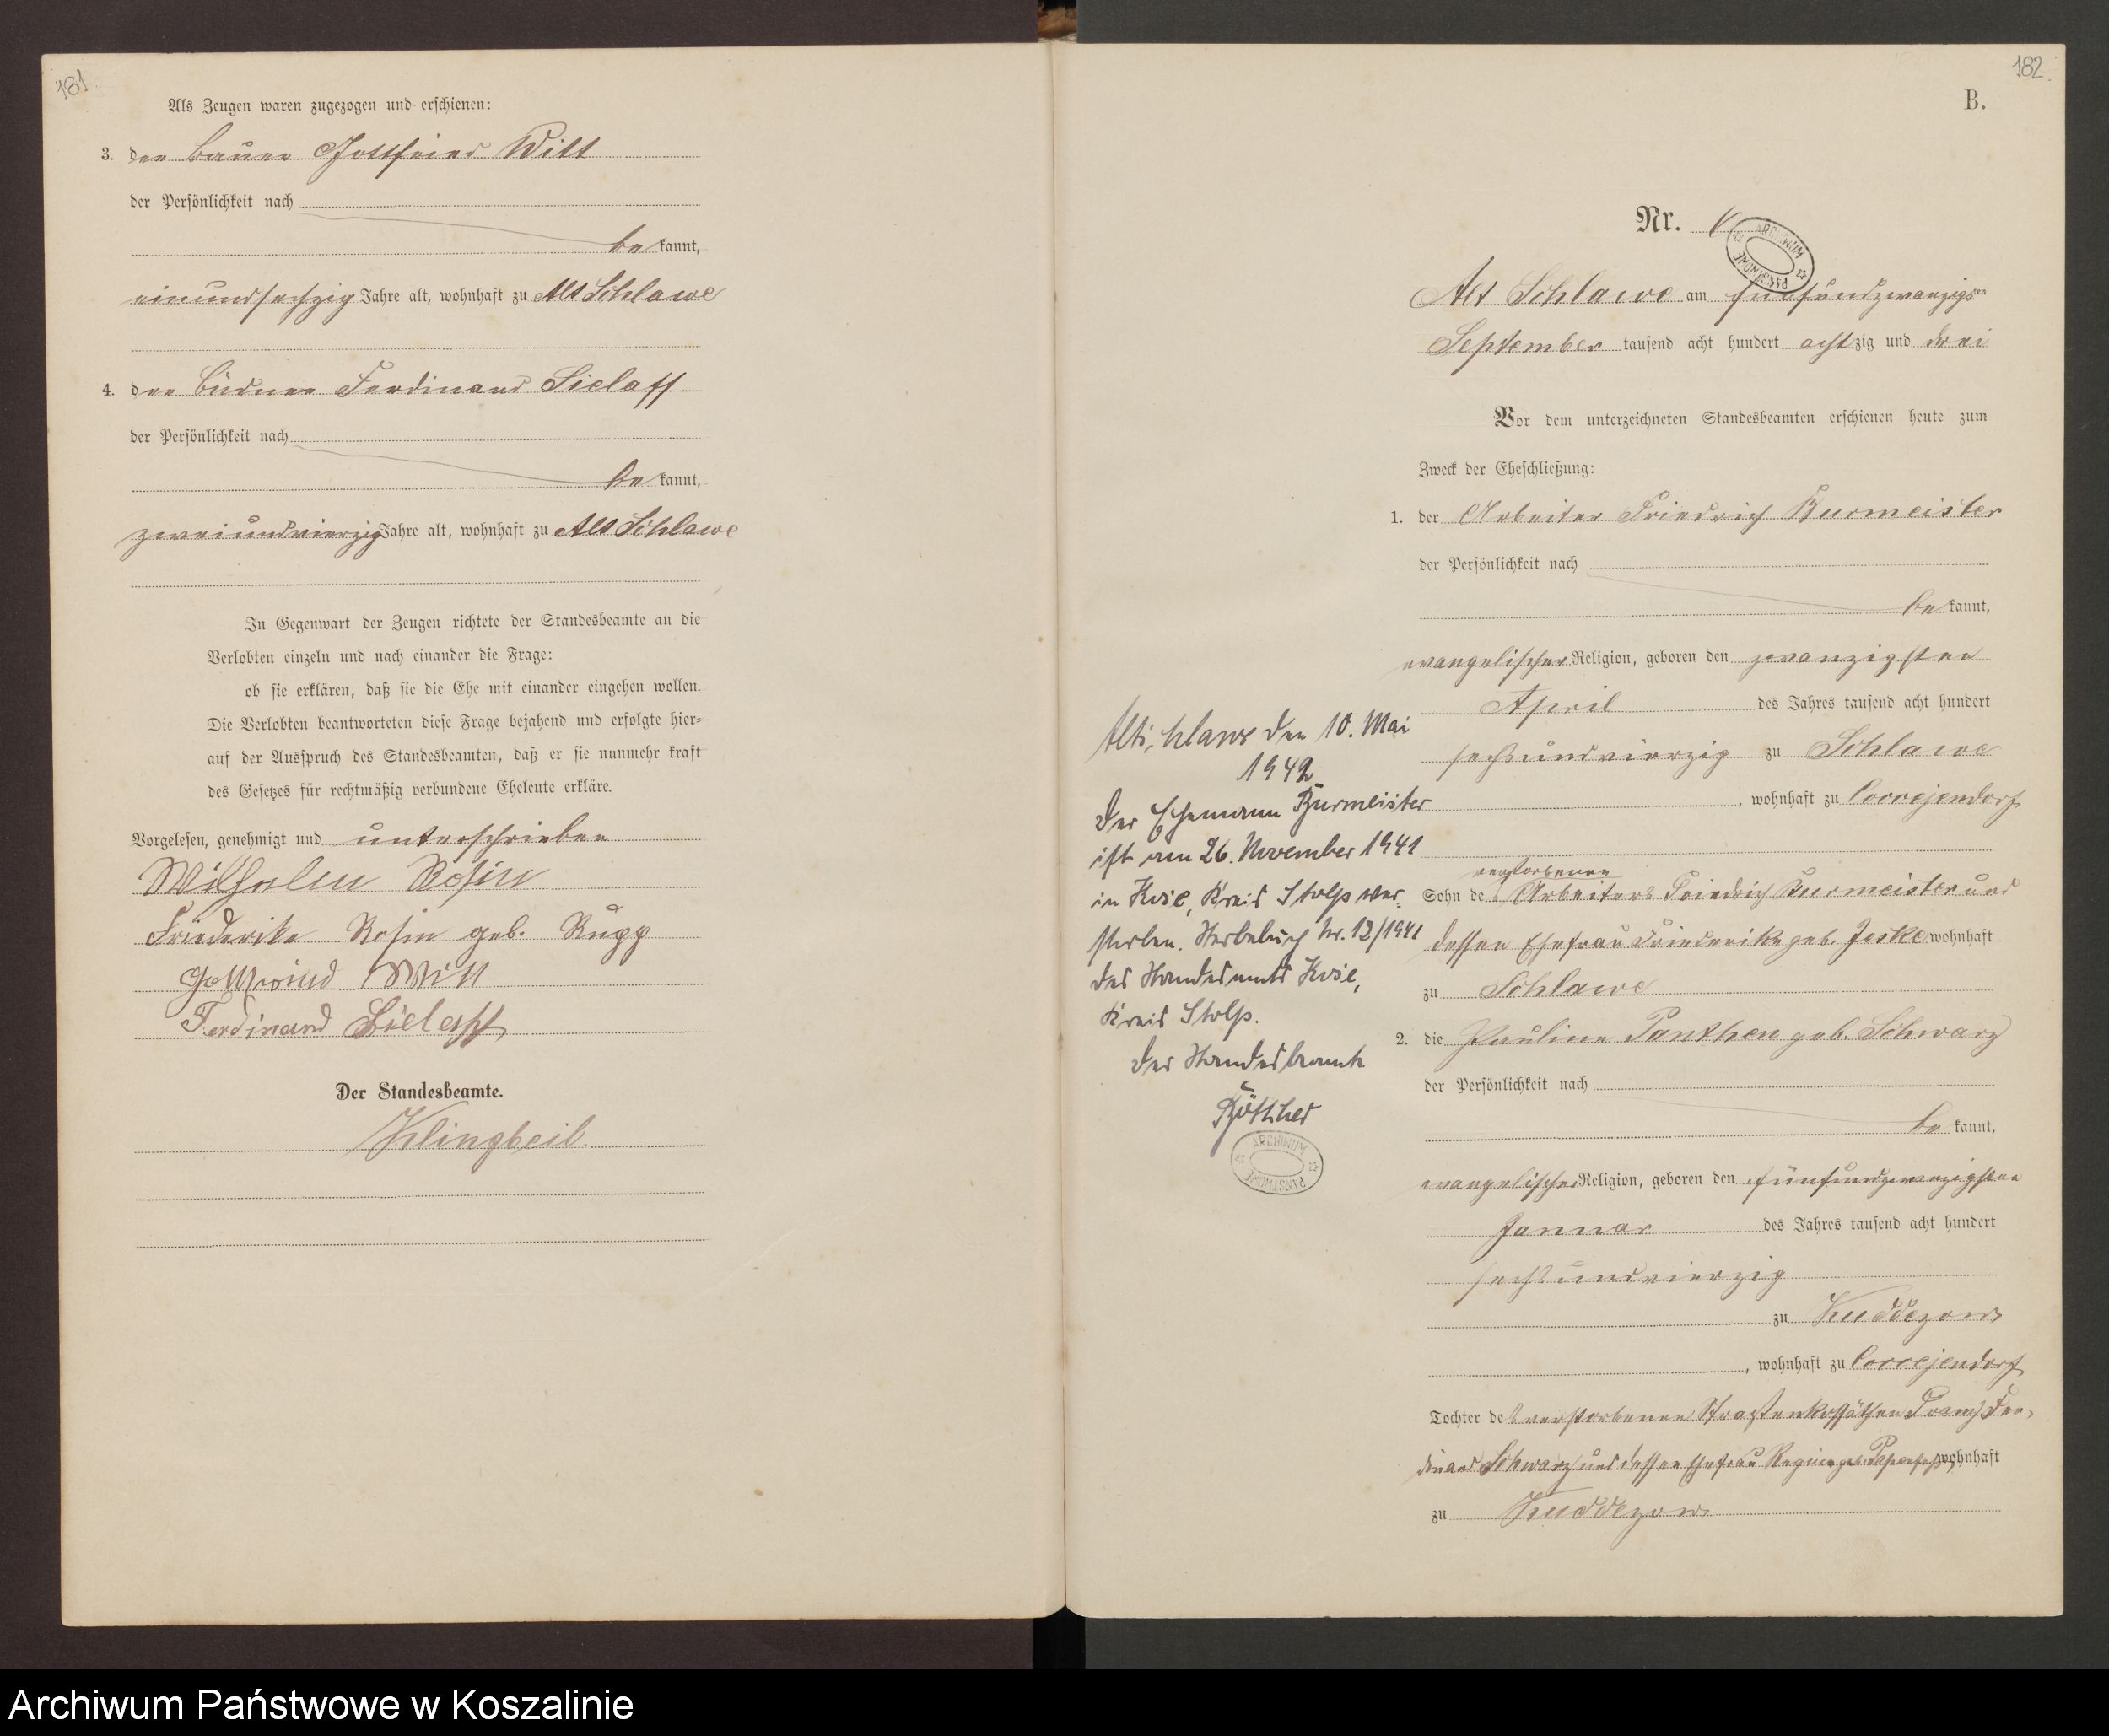 181
Als Zeugen waren zugezogen und erschienen:
3. der Bauer Gottfried Witt
der Persönlichkeit nach
be kannt,
einundsechzig Jahre alt, wohnhaft zu Alt Schlawe
4. der Büdner Ferdinand Sielaff
der Persönlichkeit nach
be kannt,
zweiundvierzig Jahre alt, wohnhaft zu Alt Schlawe
In Gegenwart der Zeugen richtete der Standesbeamte an die
Verlobten einzeln und nach einander die Frage:
ob sie erklären, daß sie die Ehe mit einander eingehen wollen.
Die Verlobten beantworteten diese Frage bejahend und erfolgte hier=
auf der Ausspruch des Standesbeamten, daß er sie nunmehr kraft
des Gesetzes für rechtmäßig verbundene Eheleute erkläre.
Vorgelesen, genehmigt und unterschrieben
Wilhelm Rosin
Friederike Rosin geb. Rupp
Gottfried Witt
Ferdinand Sielaff
Der Standesbeamte.
Klingbeil.
182
B.
Nr.
ARCHIWUM PAŃSTWOWE
Alt Schlawe am fünfundzwanzigsten
September tausend acht hundert achtzig und drei
Vor dem unterzeichneten Standesbeamten erschienen heute zum
Zweck der Eheschließung:
1. der Arbeiter Friedrich Burmeister
der Persönlichkeit nach
be kannt,
evangelischer Religion, geboren den zwanzigsten
April des Jahres tausend acht hundert
sechsundvierzig zu Schlawe
, wohnhaft zu Coccejendorf
verstorbenen
Sohn des Arbeiters Friedrich Burmeister und
dessen Ehefrau Friederike geb. Jeske wohnhaft
zu Schlawe
2. die Pauline Panthen geb. Schwarz
der Persönlichkeit nach
be kannt,
evangelischer Religion, geboren den fünfundzwanzigsten
Januar des Jahres tausend acht hundert
sechsundvierzig
zu Kuddezow
, wohnhaft zu Coccejendorf
Tochter des verstorbenen Straßenkossäthen Franz Fer-
dinand Schwarz und dessen Ehefrau Regine geb. wohnhaft
zu Kuddezow
Altschlawe den 10. Mai
1942
Der Ehemann Burmeister
ist am 26. November 1941
in Kose, Kreis Stolp ver-
storben. Sterbebuch Nr. 12/1941
des Standesamts Kose,
Kreis Stolp.
Der Standesbeamte
Böttcher
ARCHIWUM PAŃSTWOWE
Archiwum Państwowe w Koszalinie